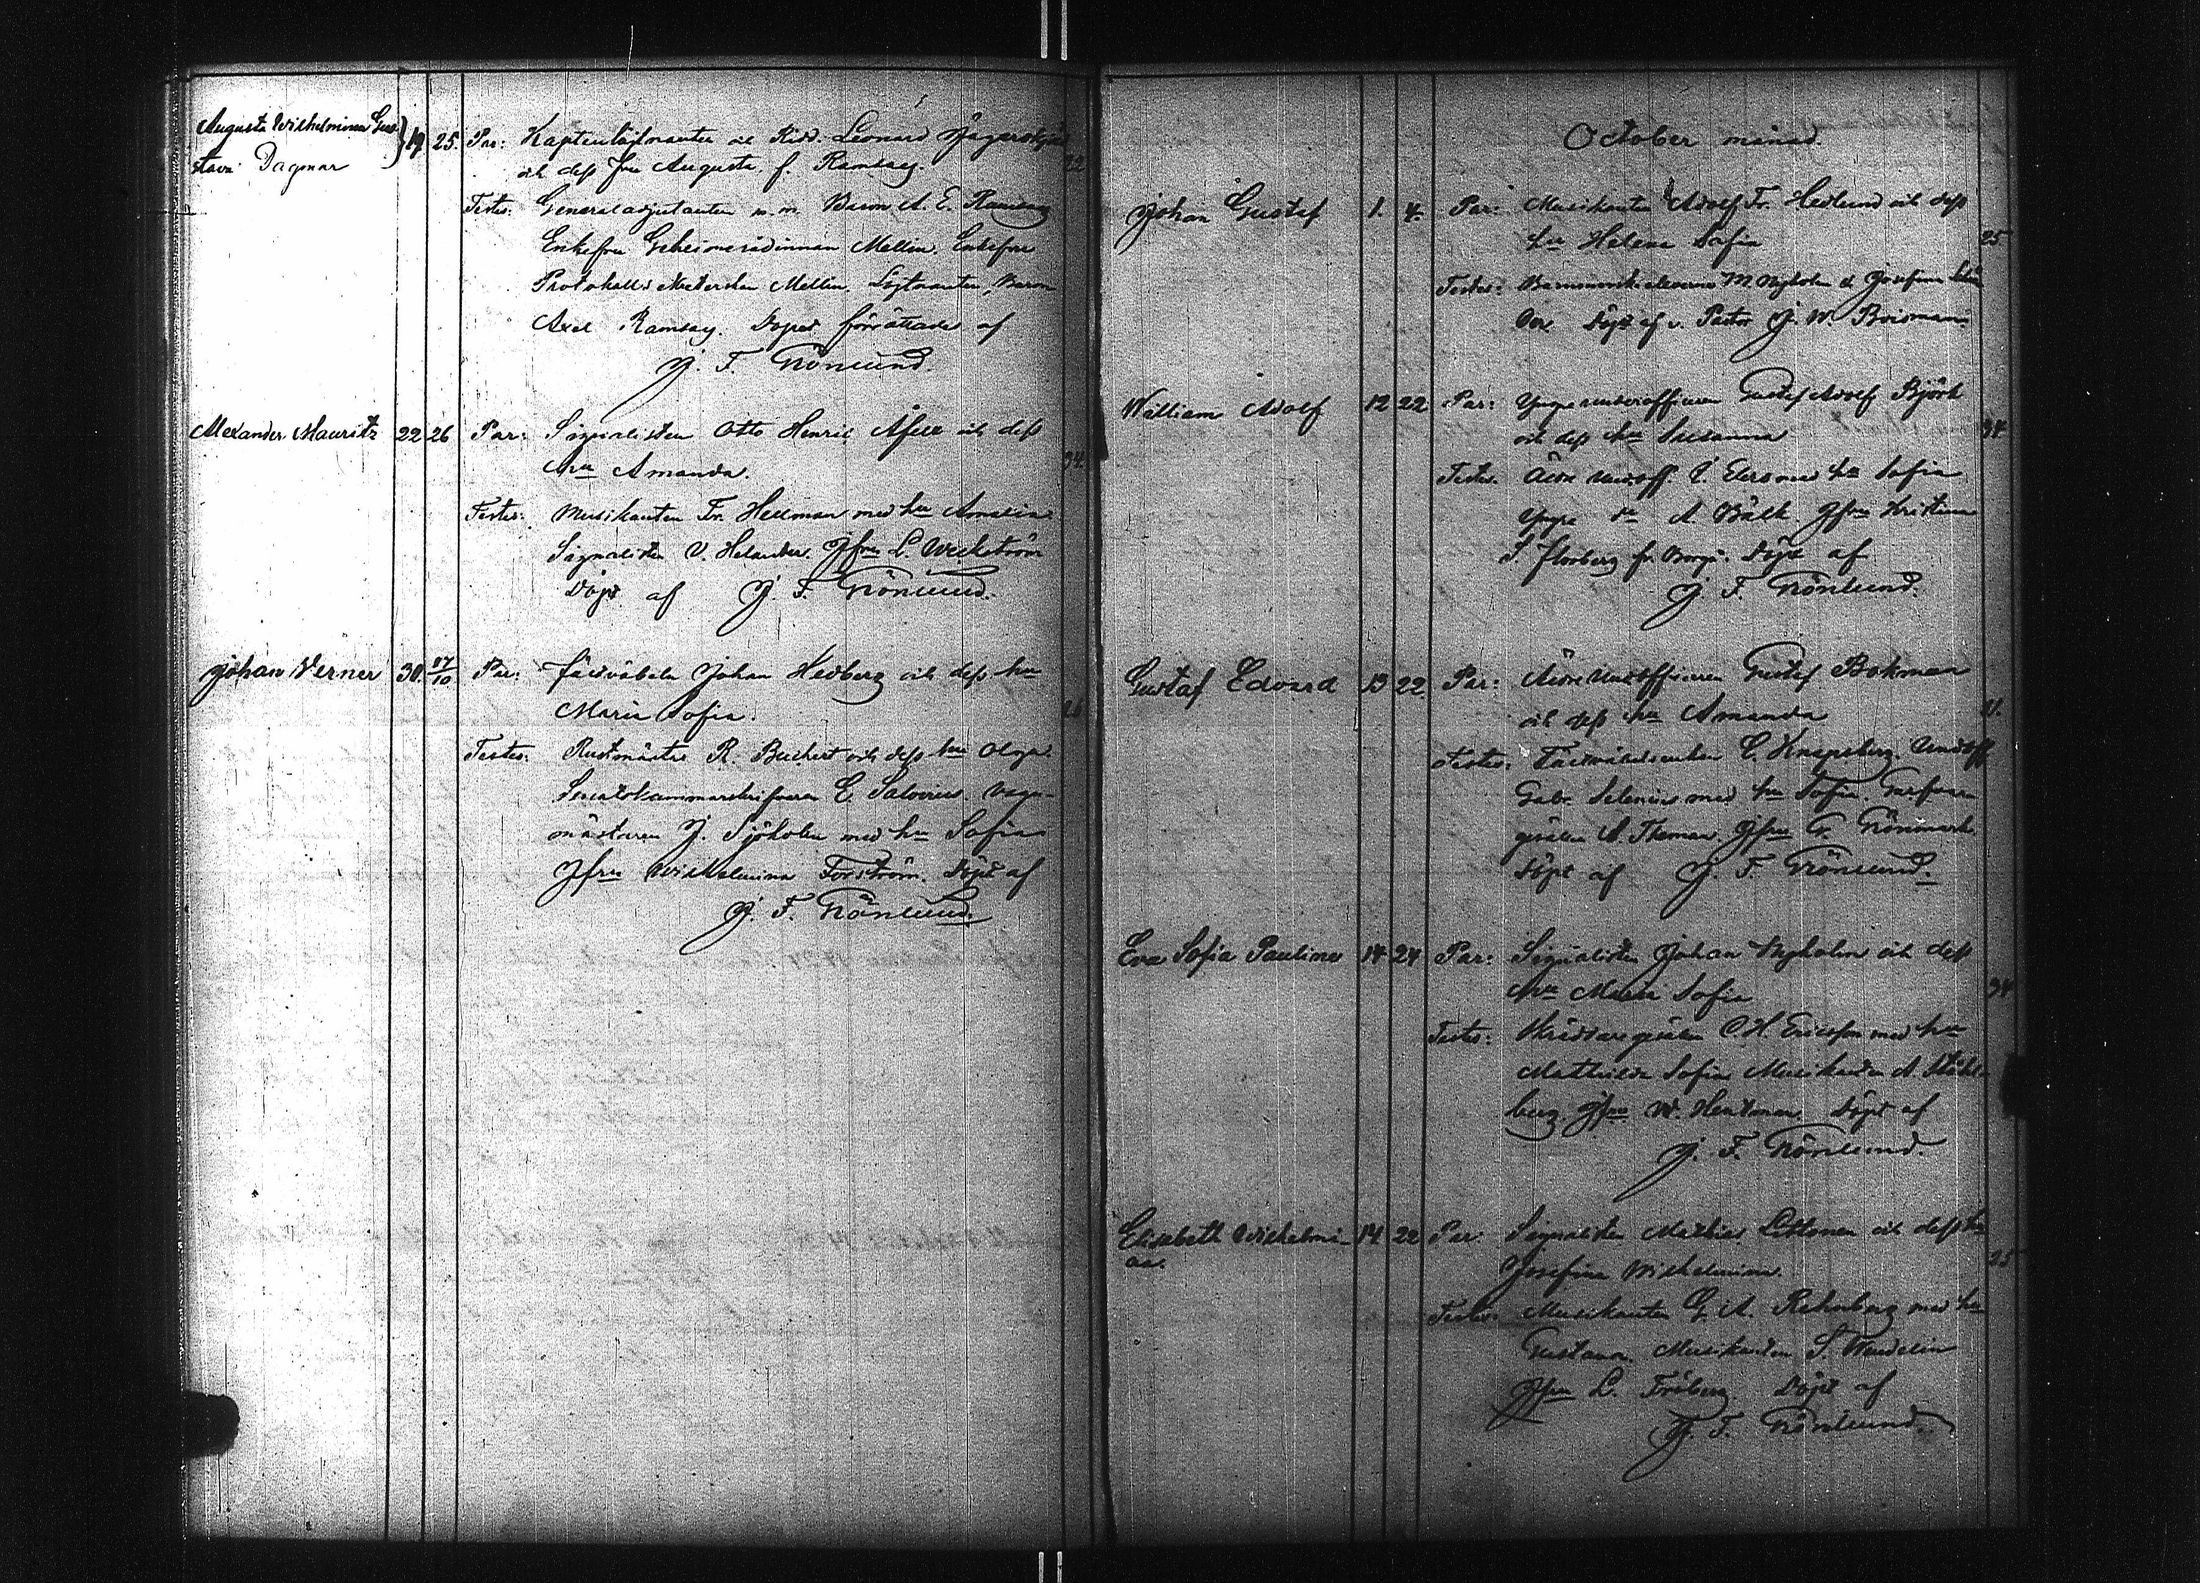 Augusta Wilhelmina Gus- } 19 25. Par: Kaptenlöjtnanten och Ridd. Leonard
tava Dagmar och dess fru Augusta f. Ramsay. 22
Testes: Generaladjutanten m. m. Baron A. E. Ramsay
Enkefru Geheimerådinnan Mellin. Enkefru
Mellin, Löjtnanten, Baron
Axel Ramsay. Dopet förrättades af
J. F. Grönlund.
Alexander Mauritz 22 26 Par: Signalisten Otto Henric och dess
hu Amanda. 34
Testes: Musikanten Fr. Hellman med hu Amalia
Signalisten V. Helander. Jfru L. Weckström
Döpt af J. F. Grönlund.
Johan Verner 30. 17/10 Par: Fältväbeln Johan Hedberg och dess hu
Maria Sofia. 26
Testes: Rustmästar R. Buchert och dess hu Olga.
E. Vagn-
mästaren J. Sjöholm med hu Sofia
Jfru Wilhelmina Forström. Döpt af
J. F. Grönlund.
October månad.
Johan Gustaf 1. 4. Par: Musikanten Adolf Fr. Hedlund och dess
hu Helena Sofia 25
Testes: M Nyholm & Josefina
Döpt af v. Pastor J. W. Boisman.
William Adolf 12 22 Par: Yngre underofficeren Gustaf Adolf Björk
och dess hu Susanna 34
Testes: Äldre Undoff. med hu Sofia
Yngre do A. Bälk Jfru Kristina
S. fr. Borgå. Döpt af
J. F. Grönlund.
Gustaf Edvard 13 22 Par: Äldre Undofficeren Gustaf Bokman
och dess hu Amanda
Testes: C. Knapsberg. Undoff
Gabr. Selenius med hu Sofia
A. Thoman, Jfru G. Grönmark.
Döpt af J. F. Grönlund.
Eva Sofia Paulina 14 24 Par: Signalisten Johan Nyholm och dess
hu Maria Sofia 34
Testes: Skräddaregesällen C. H. Ericsson med hu
Mathilda Sofia Musikanten A. Ståhl-
berg Jfru W. Hentman Döpt af
J. F. Grönlund.
Elisabeth Wilhelmi- 14 22 Par: Signalisten Mathias Littonen och dess hu
na. Josefina Wilhelmina. 25
Testes: Musikanten G. A. Rehnberg med hu
Gustava. Musikanten S. Wendelin
Jfru L. Friberg. Döpt af
J. F. Grönlund.